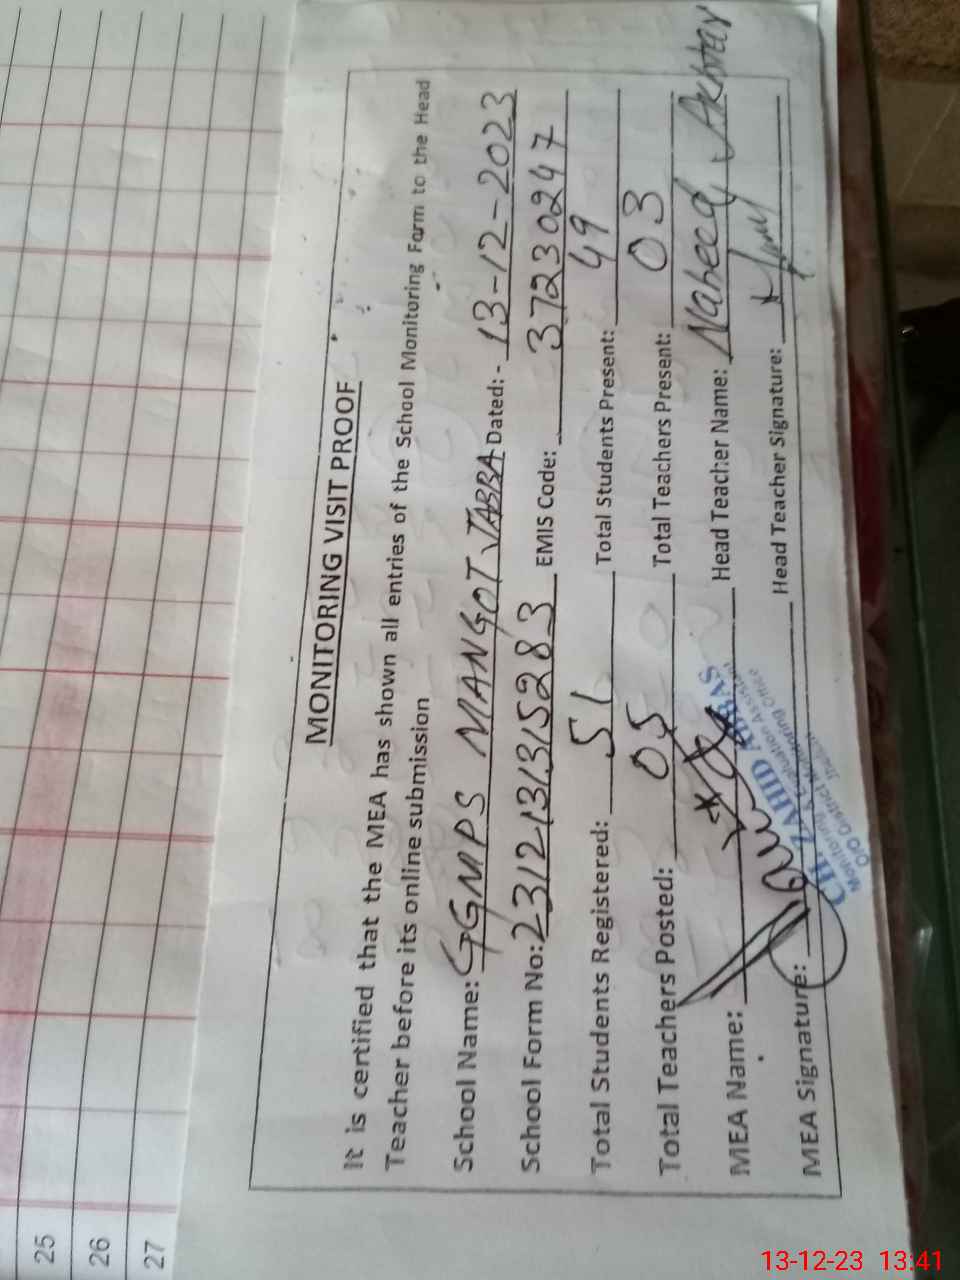 25
26
27
MONITORING VISIT PROOF
It is certified that the MEA has shown all entries of the School Monitoring Form to the Head
Teacher before its online submission
School Name: GGMPS MANGOT JABBA Dated: - 13-12-2023
School Form No: 2312131315283 EMIS Code: 37230247
Total Students Registered: 51 Total Students Present: 49
Total Teachers Posted: 05 Total Teachers Present: 03
MEA Name: Head Teacher Name: Nabeed Akhtar
MEA Signature: Head Teacher Signature:
CH. ZAHID ABBAS
Monitoring & Evaluation Assistant
O/O District Monitoring Office
13-12-23 13:41